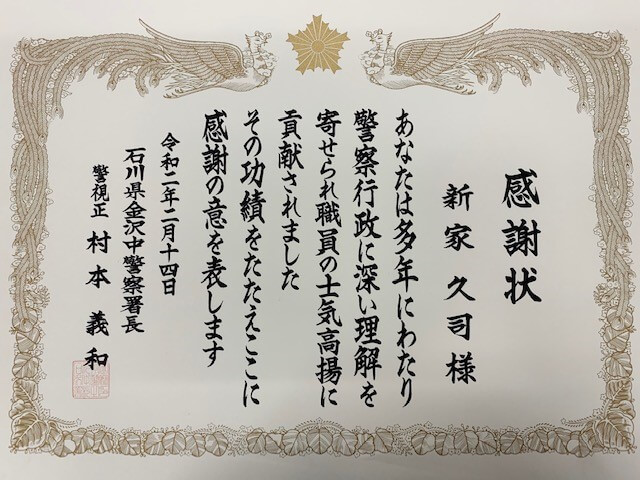 感謝状
新家久司様
あなたは多年にわたり
警察行政に深い理解を
寄せられ職員の士気高揚に
貢献されました
その功績をたたえここに
感謝の意を表します
令和二年二月十四日
石川県金沢中警察署長
警視正 村本義和